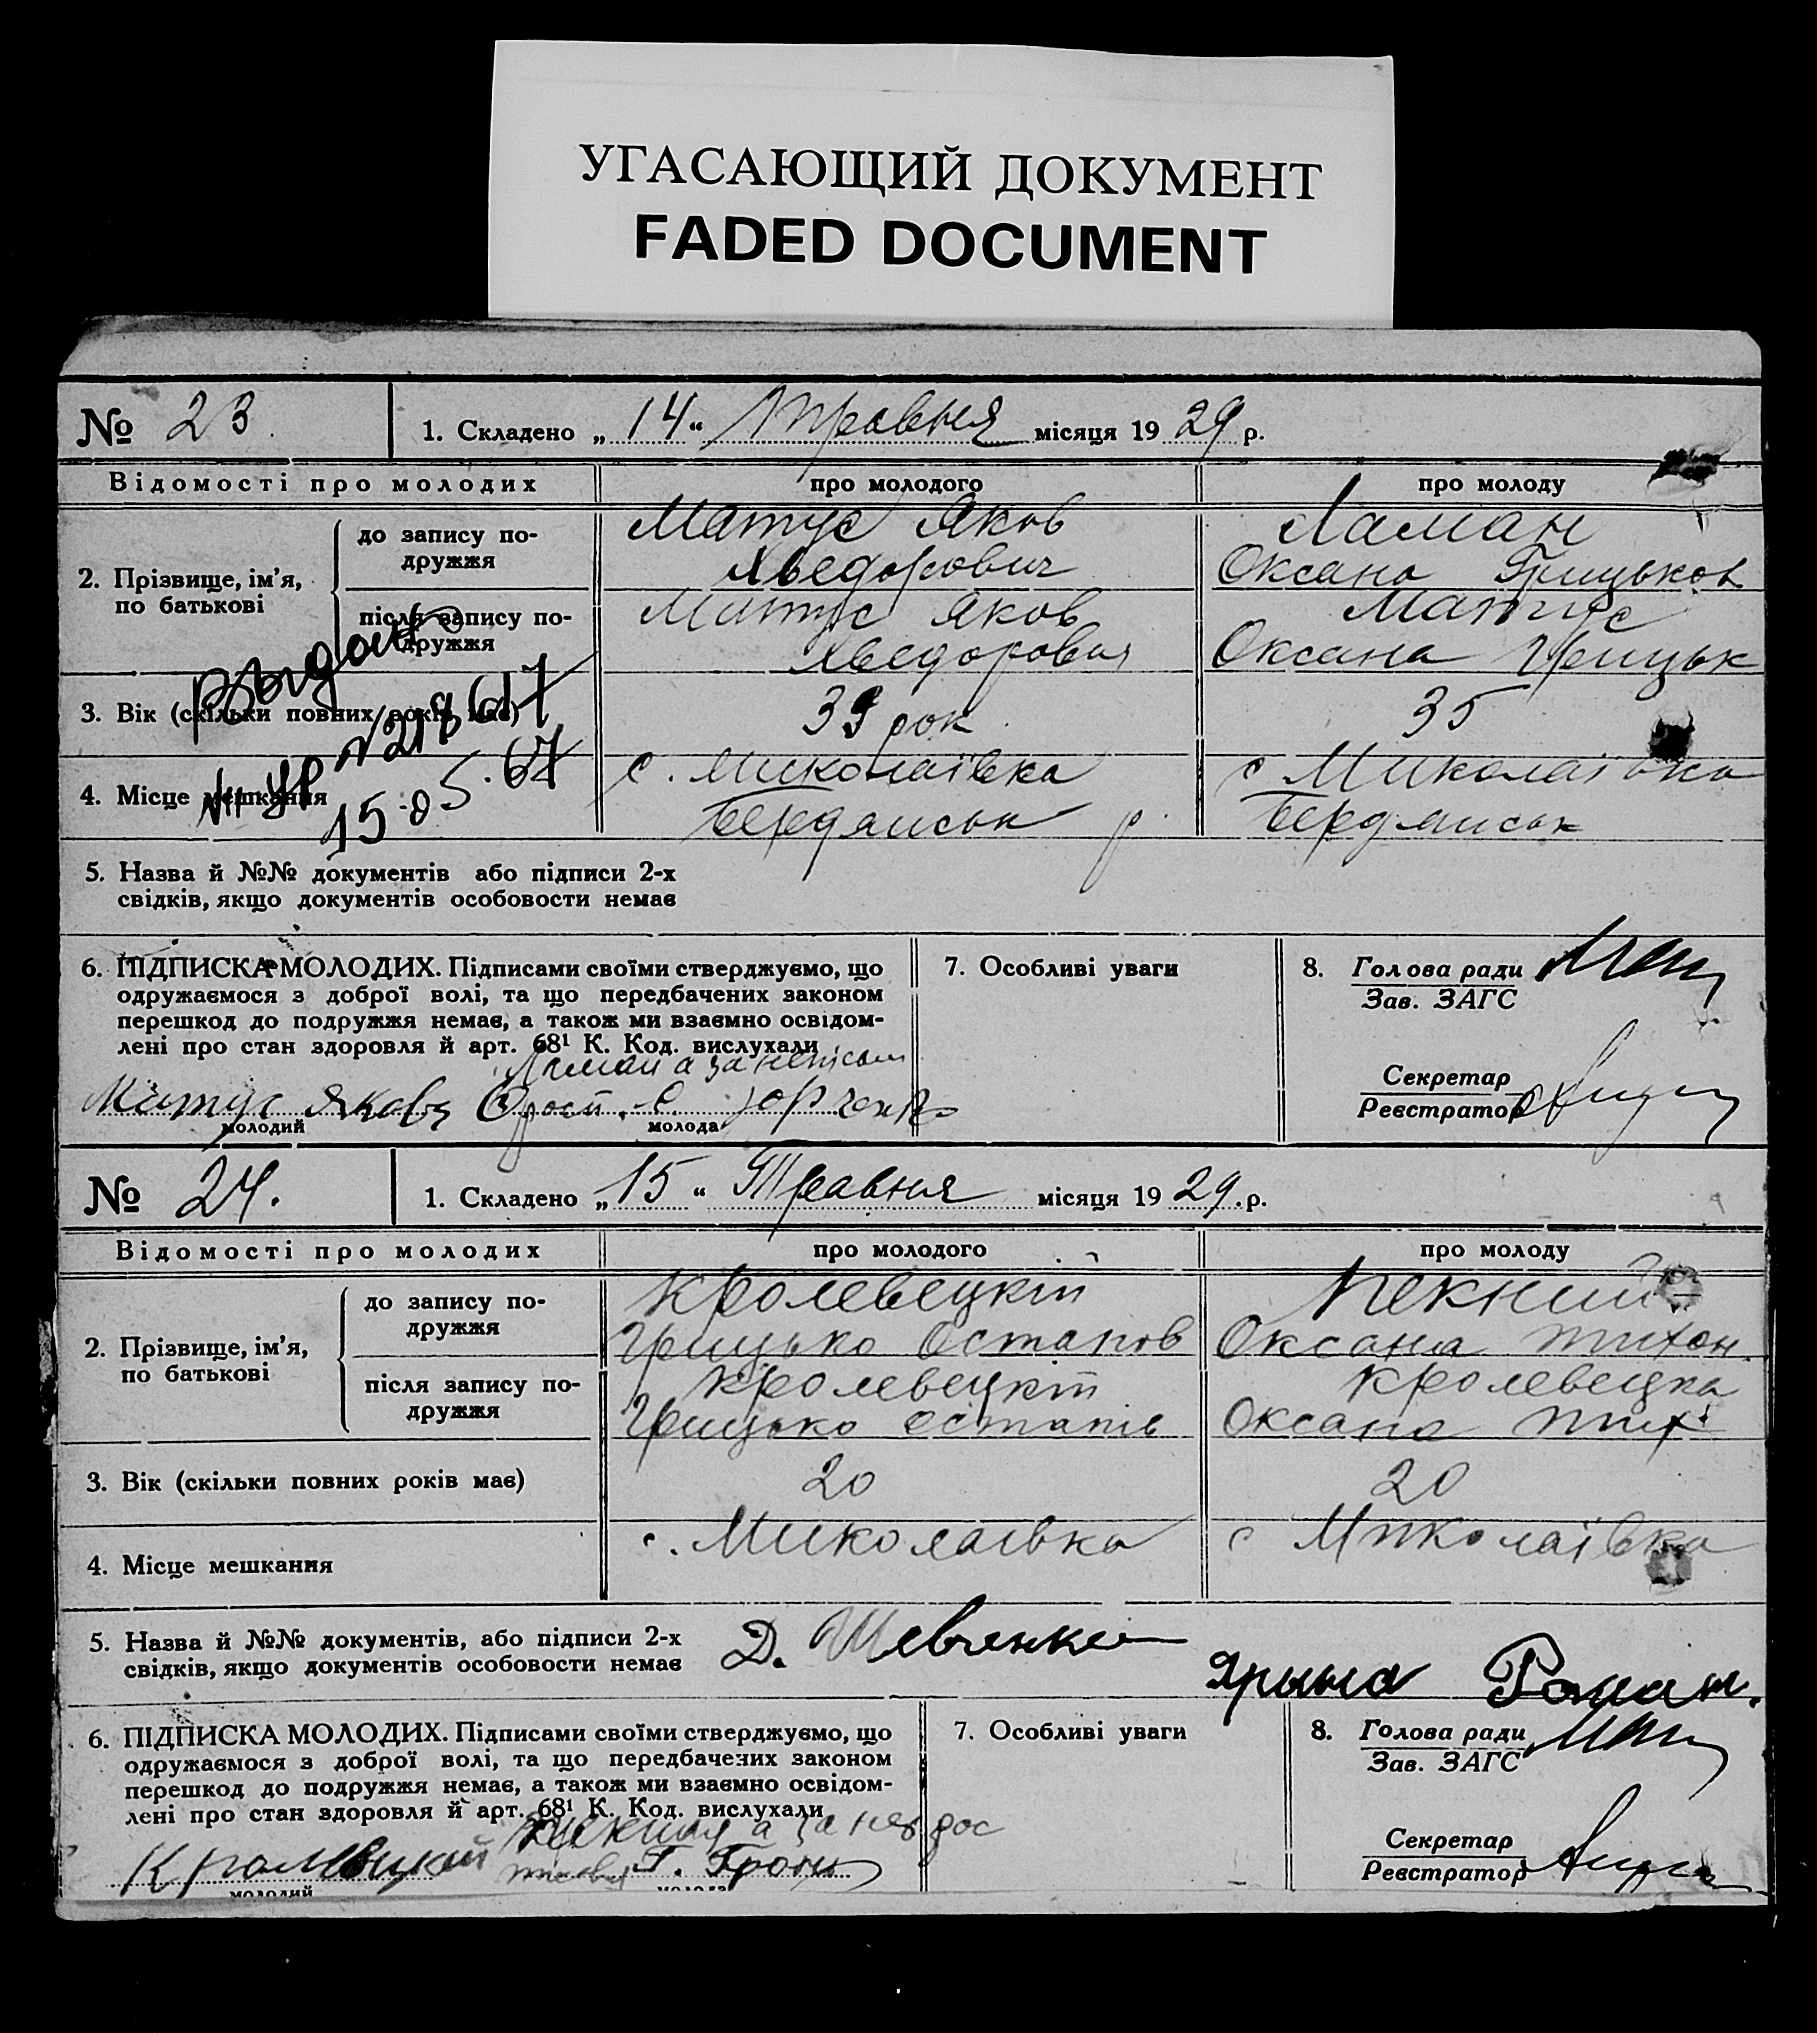 УГАСАЮЩИЙ ДОКУМЕНТ
FADED DOCUMENT
№ 23. 1. Складено „14“ Травня місяця 1929 р.
Відомості про молодих про молодого про молоду
2. Прізвище, ім'я, по батькові
до запису по-
дружжя
Матус Яков
Хведорович
Ламан
Оксана Грицьков
після запису по-
дружжя
Матус Яков
Хведорович
Матус
Оксана Грицьк
Выдан
3. Вік (скільки повних років має) 39 рок 35
№218617
4. Місце мешкання
15.05.67
с. Миколаївка
Бердянськ р.
с Миколаівка
Бердянськ
5. Назва й №№ документів або підписи 2-х
свідків, якщо документів особовости немає
6. ПІДПИСКА МОЛОДИХ. Підписами своїми стверджуємо, що
одружаємося з доброї волі, та що передбачених законом
перешкод до подружжя немає, а також ми взаємно освідом-
лені про стан здоровля й арт. 68¹ К. Код. вислухали
Ламан а за
Матус Яков
молодий молода
7. Особливі уваги
8. Голова ради
Зав. ЗАГС
Секретар
Реєстратор
№ 24. 1. Складено „15“ Травня місяця 1929.р.
Відомості про молодих про молодого про молоду
2. Прізвище, ім'я,
по батькові
до запису по-
дружжя
Кролевецкій
Грицько Остапов
Оксана Тихон.
після запису по-
дружжя
Кролевецкій
Грицько Остапів
Кролевецка
Оксана Тих
3. Вік (скільки повних років має) 20 20
4. Місце мешкання с. Миколаівка с Миколаївка
5. Назва й №№ документів, або підписи 2-х
свідків, якщо документів особовости немає
Д. Шевченко
Роман.
6. ПІДПИСКА МОЛОДИХ. Підписами своїми стверджуємо, що
одружаємося з доброї волі, та що передбачених законом
перешкод до подружжя немає, а також ми взаємно освідом-
лені про стан здоровля й арт. 68¹ К. Код. вислухали
а за
Г.
молодий молода
7. Особливі уваги
8. Голова ради
Зав. ЗАГС
Секретар
Реєстратор